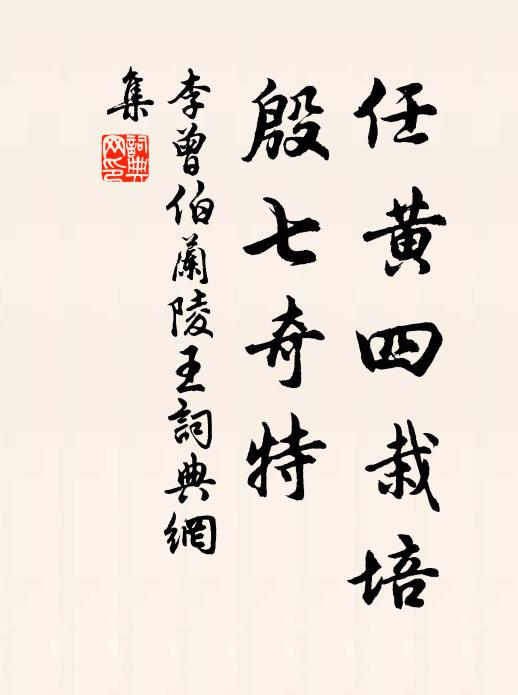 任黄四栽培
殷七奇特
李曾伯蘭陵王詞典網
集
詞典
网印